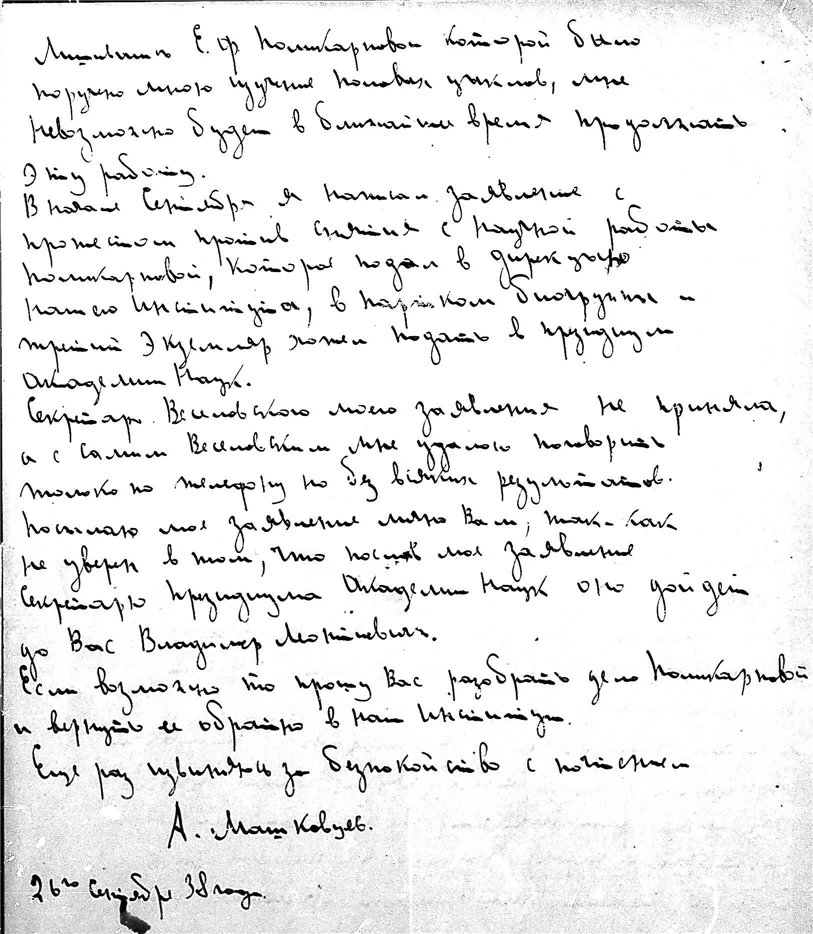 Лишившись Е. Ф Поликарповой которой было
поручено мною изучение половых циклов, мне
невозможно будет в ближайшее время продолжать
эту работу.
В начале Сентября я написал заявление с
протестом против снятия с научной работы
Поликарповой, которое подал в дирекцию
нашего Института, в партком биогруппы и
третий Экземпляр хотел подать в президиум
Академии Наук.
Секретарь Веселовского моего заявления не приняла,
а с самим Веселовским мне удалось поговорить
только по телефону но без всяких результатов.
Посылаю мое заявление лично Вам, так-как
не уверен в том, что послав мое заявление
Секретарю президиума Академии Наук оно дойдет
до Вас Владимир Леонтьевич.
Если возможно то прошу Вас разобрать дело Поликарповой
и вернуть ее обратно в наш Институт.
Еще раз извиняюсь за безпокойство с почтением
А. Машковцев.
26го Сентября 38 года.